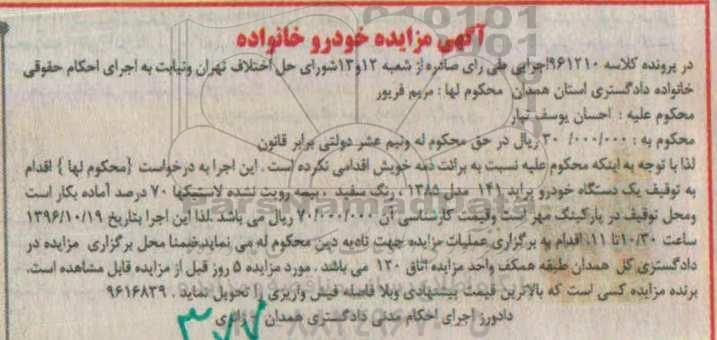 آگهی مزایده خودرو خانواده
در پرونده کلاسه ۹۶۱۲۱۰اجرایی طی رای صادره از شعبه ۱۲و۱۳شورای حل اختلاف تهران ونیابت به اجرای احکام حقوقی
خانواده دادگستری استان همدان محکوم لها : مریم فریور
محکوم علیه : احسان یوسف تبار
محکوم به : ۳۰/۰۰۰/۰۰۰ ریال در حق محکوم له ونیم عشر دولتی برابر قانون
لذا با توجه به اینکه محکوم علیه نسبت به برائت ذمه خویش اقدامی نکرده است . این اجرا به درخواست {محکوم لها } اقدام
به توقیف یک دستگاه خودرو پراید ۱۴۱ مدل ۱۳۸۵ ، رنگ سفید ، بیمه رویت نشده لاستیکها ۷۰ درصد آماده بکار است
ومحل توقیف در پارکینگ مهر است وقیمت کارشناسی آن ۷۰/۰۰۰/۰۰۰ ریال می باشد .لذا این اجرا بتاریخ ۱۳۹۶/۱۰/۱۹
ساعت ۱۰/۳۰تا ۱۱، اقدام به برگزاری عملیات مزایده جهت تادیه دین محکوم له می نماید.ضمنا محل برگزاری مزایده در
دادگستری کل همدان طبقه همکف واحد مزایده اتاق ۱۲۰ می باشد . مورد مزایده ۵ روز قبل از مزایده قابل مشاهده است.
برنده مزایده کسی است که بالاترین قیمت پیشنهادی وبلا فاصله فیش واریزی را تحویل نماید . ۹۶۱۶۸۳۹
دادورز اجرای احکام مدنی دادگستری همدان -
۳۷۷
ParsNamadData